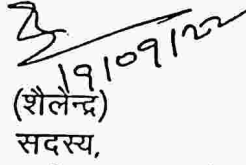 19/09/22
(शैलेन्द्र)
सदस्य,